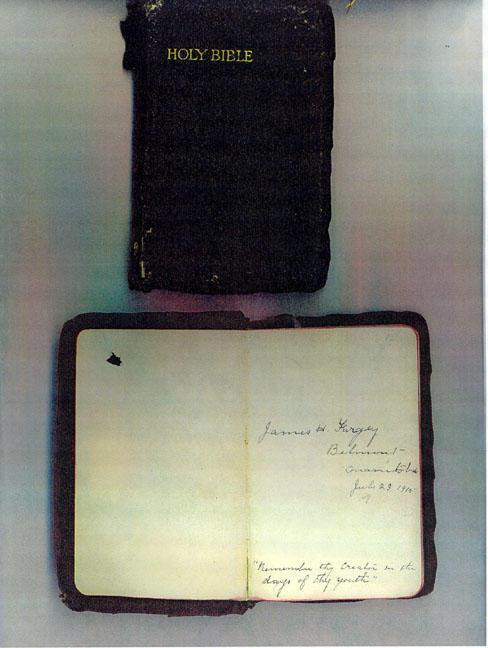 HOLY BIBLE
James H. Fargey
Belmont
Manitoba
July 23 191
"Remember thy Creator in the
days of thy youth"